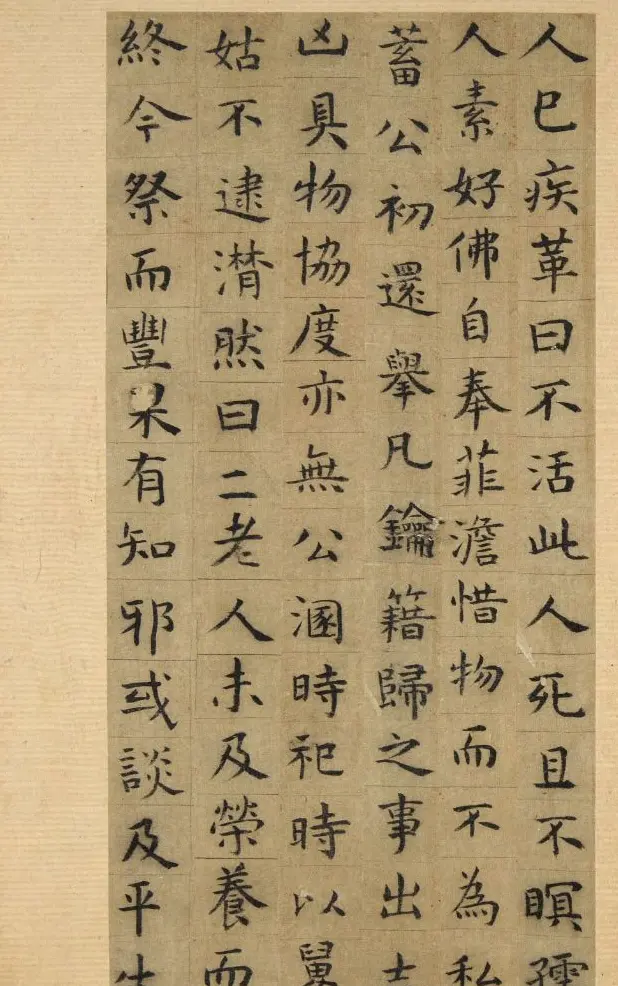 人已疾革曰不活此人死且不瞑孺
人素好佛自奉菲澹惜物而不為私
蓄公初還舉凡鑰籍歸之事出
凶具物協度亦無公溷時祀時以舅
姑不逮潸然曰二老人未及榮養而
終今祭而豐果有知邪或談及平生